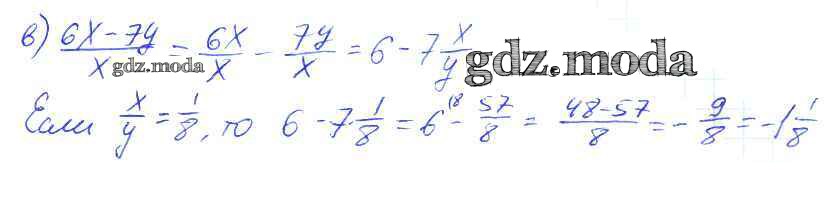 в) (6x-7y)/x = 6x/x - 7y/x = 6 - 7 x/y
gdz.moda
gdz.moda
Если x/y = 1/8, то 6 - 7 1/8 = 6 - 57/8 = (48-57)/8 = - 9/8 = -1 1/8